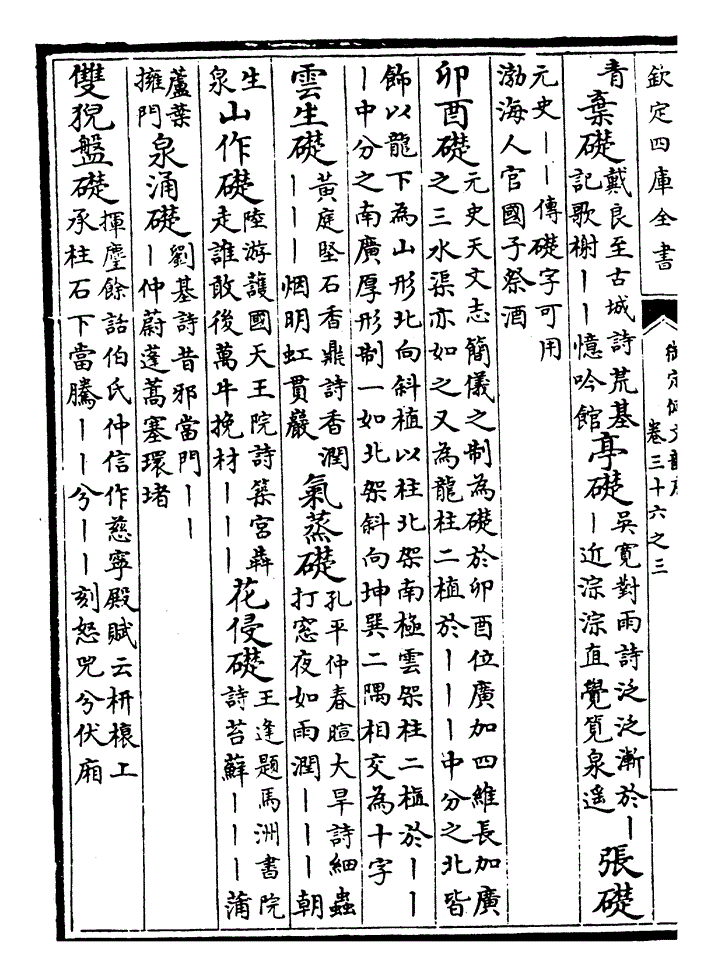 欽定四庫全書
御定佩文韻府
卷三十六之三
青
棄礎
戴良至古城詩荒基
記歌榭丨丨憶吟館
亭礎
吳寬對雨詩泛泛漸於丨
丨近淙淙直覺筧泉遙
張礎
元史丨丨傳礎字可用
渤海人官國子祭酒
卯酉礎
元史天文志簡儀之制為礎於卯酉位廣加四維長加廣
之三水渠亦如之又為龍柱二植於丨丨丨中分之北皆
飾以龍下為山形北向斜植以柱北架南極雲架柱二植於丨丨
丨中分之南廣厚形制一如北架斜向坤巽二隅相交為十字
雲生礎
黃庭堅石香鼎詩香潤
丨丨丨烟明虹貫巖
氣蒸礎
孔平仲春暄大旱詩細蟲
打窓夜如雨潤丨丨丨朝
生
泉
山作礎
陸游護國天王院詩築宮犇
走誰敢後萬牛挽材丨丨丨
花侵礎
王逢題馬洲書院
詩苔蘚丨丨丨蒲
蘆葉
擁門
泉涌礎
劉基詩昔邪當門丨丨
丨仲蔚蓬蒿塞環堵
雙猊盤礎
揮麈餘話伯氏仲信作慈寧殿賦云枅榱上
承柱石下當騰丨丨兮丨丨刻怒兕兮伏廂